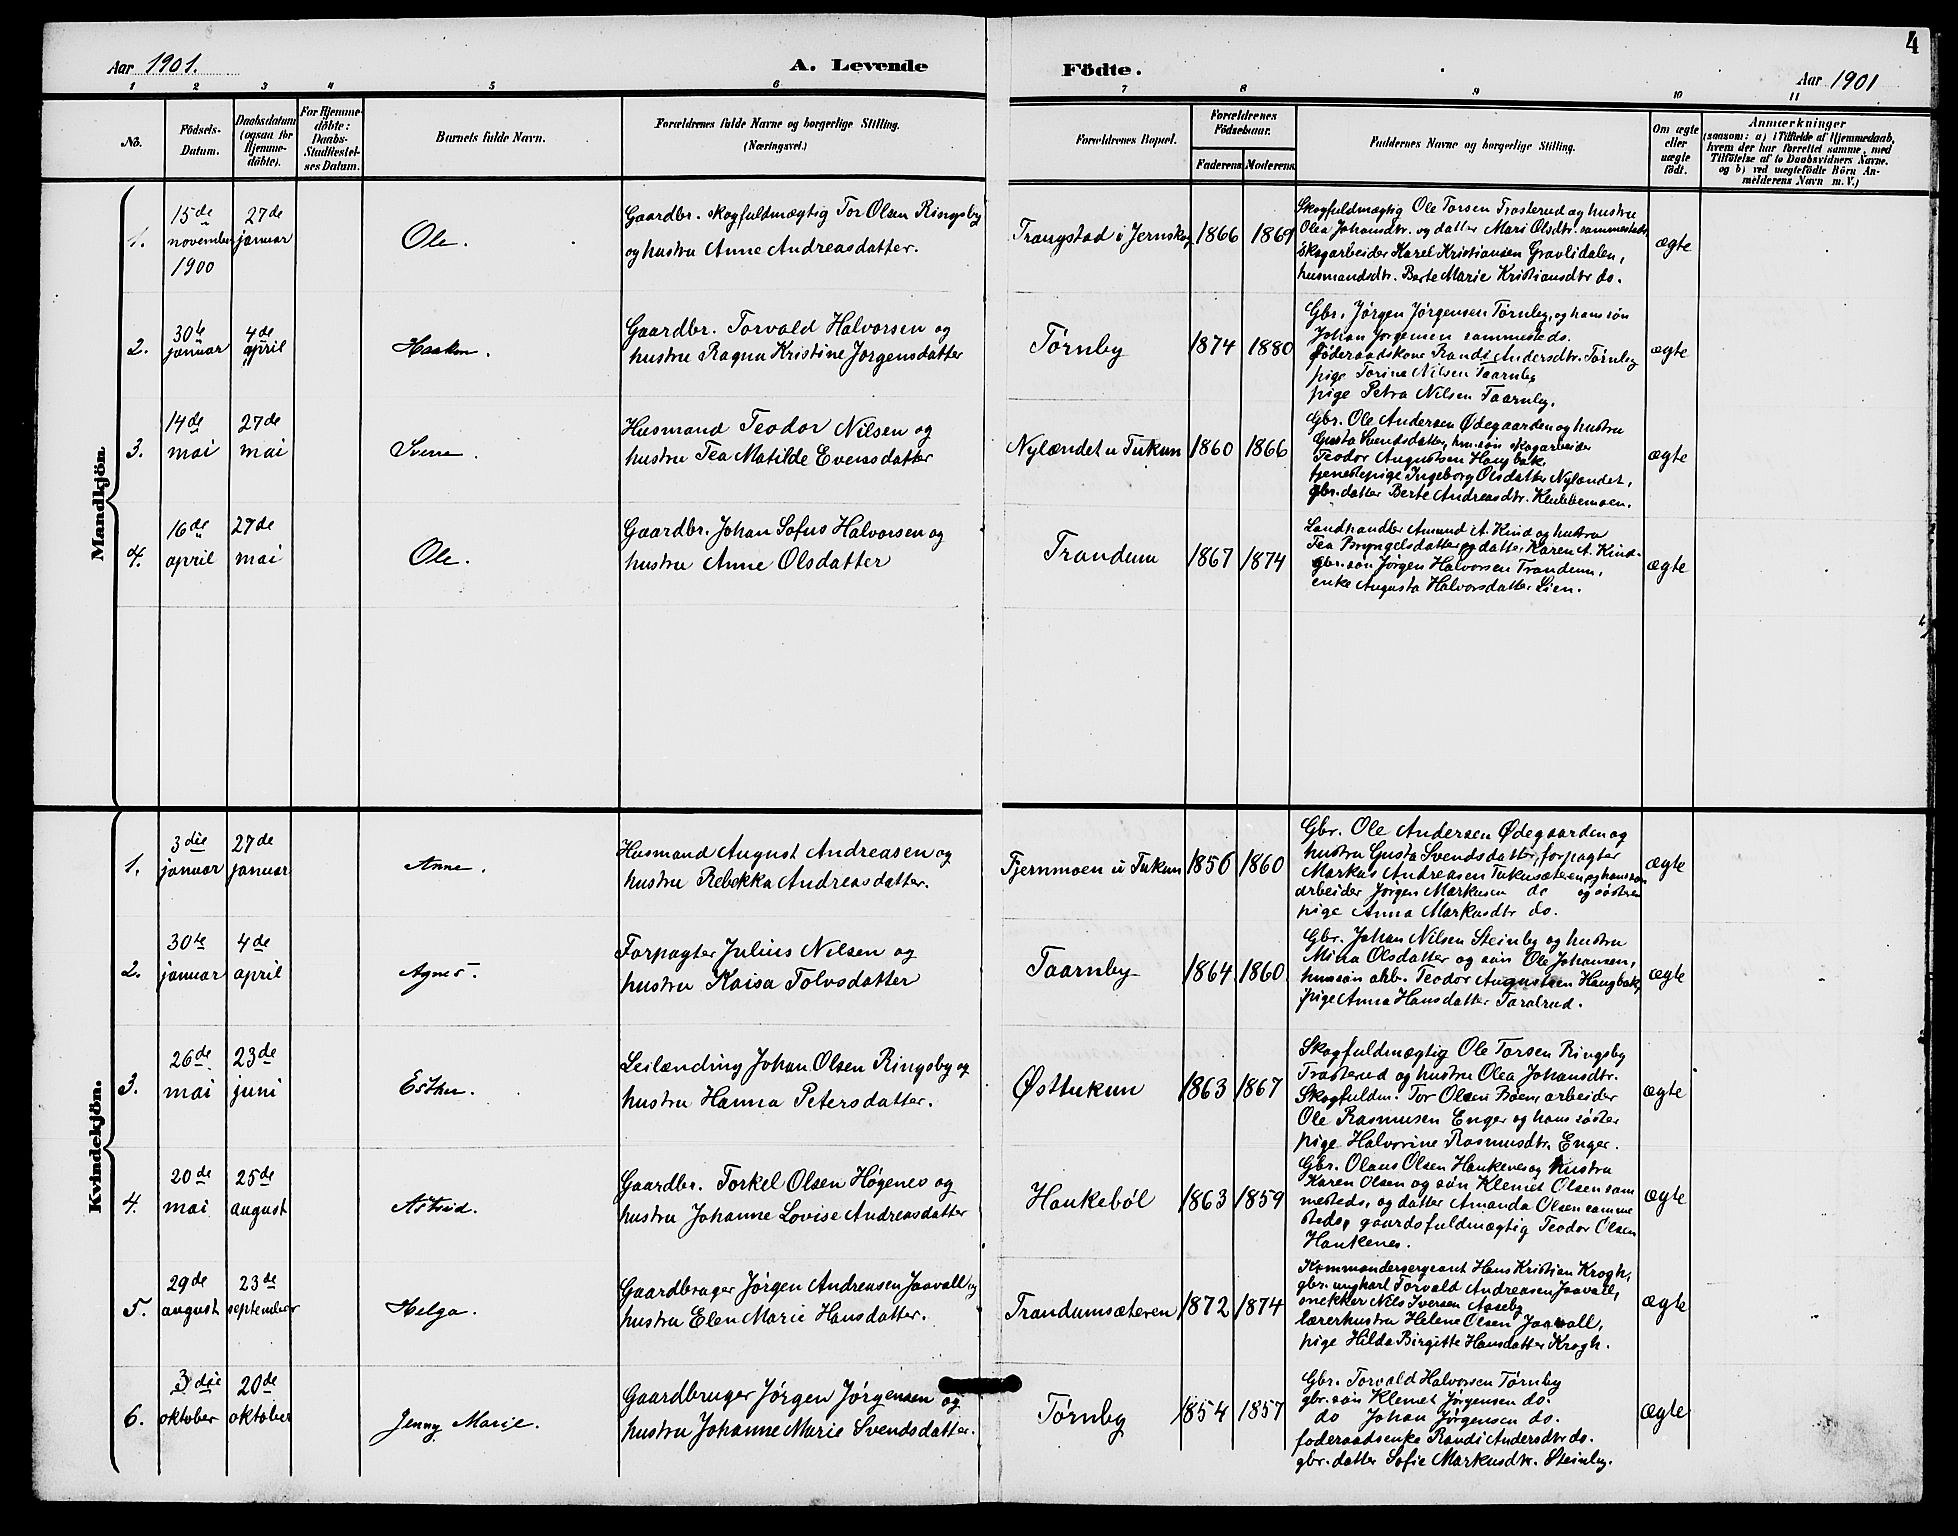 4
Aar 1901.
A. Levende
Födte.
Aar 1901
1 2 3 4 5 6 7 8 9 10 11
No.
Födsels-
Datum.
Daabsdatum
(ogsaa for
Hjemme-
döbte).
For Hjemme-
döbte:
Daabs-
Stadfæstel-
ses Datum.
Barnets fulde Navn.
Forældrenes fulde Navne og borgerlige Stilling.
(Næringsvei.)
Forældrenes Bopæl.
Forældrenes
Födselsaar.
Faderens.
Moderens.
Faddernes Navne og borgerlige Stilling.
Om ægte
eller
uægte
födt.
Anmærkninger
(saasom: a) i Tilfælde af Hjemmedaab,
hvem der har forrettet samme, med
Tilföielse af to Daabsvidners Navne.
og b) ved uægtefödte Börn An-
melderens Navn m. V.)
Mandkjön.
1.
15de
november
1900
27de
januar
Ole.
Gaardbr. skogfuldmægtig Tor Olsen Ringsby
og hustru Anne Andreasdatter.
Trangstad i Jernskog
1866
1869
Skogfuldmægtig Ole Torsen Trosterud og hustru
Olea Johansdtr. og datter Mari Olsdtr. sammesteds,
skogarbeider Karel Kristiansen Gravlidalen,
husmandsdtr. Berte Marie Kristiansdtr do.
ægte
2.
30te
januar
4de
april
Haakon.
Gaardbr. Torvald Halvorsen og
hustru Ragna Kristine Jørgensdatter
Tørnby
1874
1880
Gbr. Jørgen Jørgensen Tørnby, og hans søn
Johan Jørgensen sammesteds.
føderaadskone Randi Andersdtr. Tørnby
pige Torine Nilsen Taarnby
pige Petra Nilsen Taarnby.
ægte
3.
14de
mai
27de
mai
Sverre.
Husmand Teodor Nilsen og
hustru Tea Matilde Evensdatter
Nylændet u Tukun
1860
1866
Gbr. Ole Andersen Ødegaarden og hustru
Gusta Svendsdatter, hm.søn skogarbeider
Teodor Augustsen Haugbak,
tjenestepige Ingeborg Olsdatter Nylandet,
gbr.datter Berte Andreasdtr. Klubbemoen.
ægte
4.
16de
april
27de
mai
Ole.
Gaardbr. Johan Sofus Halvorsen og
hustru Anne Olsdatter
Trandum
1867
1874
Landhandler Amund A. Kind og hustru
Tea Bryngelsdatter og datter Karen A. Kind.
gbr.søn Jørgen Halvorsen Trandum,
enke Augusta Halvorsdatter Lien.
ægte
Kvindekjön.
1.
3die
januar
27de
januar
Anne.
Husmand August Andreasen og
hustru Rebekka Andreasdatter.
Fjernmoen u Tukun
1856
1860
Gbr. Ole Andersen Ødegaarden og
hustru Gusta Svendsdatter, forpagter
Markus Andreasen Tukusæteren og hans søn
arbeider Jørgen Markusen do og søsteren
pige Anna Markusdtr do.
ægte
2.
30te
januar
4de
april
Agnes.
Forpagter Julius Nilsen og
hustru Kaisa Tolvsdatter
Taarnby
1864
1860
Gbr. Johan Nilsen Steinby og hustru
Mina Olsdatter og søn Ole Johansen,
husm.søn arb. Teodor Augustsen Haugbak,
pige Anna Hansdatter Taralrud.
ægte
3.
26de
mai
23de
juni
Esther.
Leilænding Johan Olsen Ringsby og
hustru Hanna Petersdatter.
Østtukun
1863
1867
Skogfuldmægtig Ole Torsen Ringsby
Trosterud og hustru Olea Johansdtr.
Skogfuldm. Tor Olsen Bøen, arbeider
Ole Rasmusen Enger og hans søster
pige Halvorine Rasmusdtr. Enger.
ægte
4.
20de
mai
25de
august
Astrid.
Gaardbr. Torkel Olsen Høgenes og
hustru Johanne Lovise Andreasdatter
Haukebøl
1863
1859
Gbr. Olaus Olsen Haukenes og hustru
Karen Olsen og søn Klemet Olsen sam
mesteds, og datter Amanda Olsen samme
steds, gaardsfuldmægtig Teodor Olsen
Haukenes.
ægte
5.
29de
august
23de
september
Helga.
Gaardbruger Jørgen Andreasen Jaavall og
hustru Elen Marie Hansdatter.
Trandumsæteren
1872
1874
Kommandersergeant Hans Kristian Krogh,
gbr. ungkarl Torvald Andreasen Jaavall,
snekker Nils Iversen Aaseby
lærerhustru Helene Olsen Jaavall,
pige Hilda Birgitte Hansdatter Krogh.
ægte
6.
3die
oktober
20de
oktober
Jenny Marie.
Gaardbruger Jørgen Jørgensen og
hustru Johanne Marie Svendsdatter.
Tørnby
1854
1857
Gbr. Torvald Halvorsen Tørnby
gbr.søn Klemet Jørgensen do.
do Johan Jørgensen do.
føderaadsenke Randi Andersdtr do.
gbr.datter Sofie Markusdtr. Steinby.
ægte